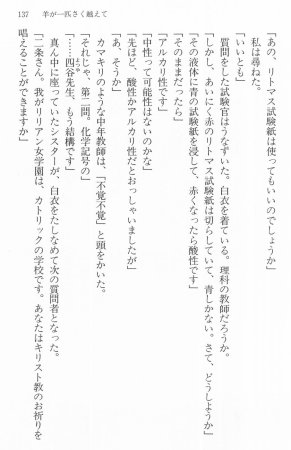 137　羊が一匹さく越えて
「あの、リトマス試験紙は使ってもいいのでしょうか」
私は尋ねた。
「いいとも」
質問をした試験官はうなずいた。白衣を着ている。理科の教師だろうか。
「しかし、あいにく赤のリトマス試験紙は切らしていて、青しかない。さて、どうしようか」
「その液体に青の試験紙を浸して、赤くなったら酸性です」
「そのままだったら」
「アルカリ性です」
「中性って可能性はないのかな」
「先ほど、酸性かアルカリ性だとおっしゃいましたが」
「あ、そうか」
カマキリのような中年教師は、「不覚不覚」と頭をかいた。
「それじゃ、第二問。化学記号の」
「……四谷先生、もう結構です」
真ん中に座っていたシスターが、白衣をたしなめて次の質問者となった。
「二条さん。我がリリアン女学園は、カトリックの学校です。あなたはキリスト教のお祈りを
唱えることができますか」